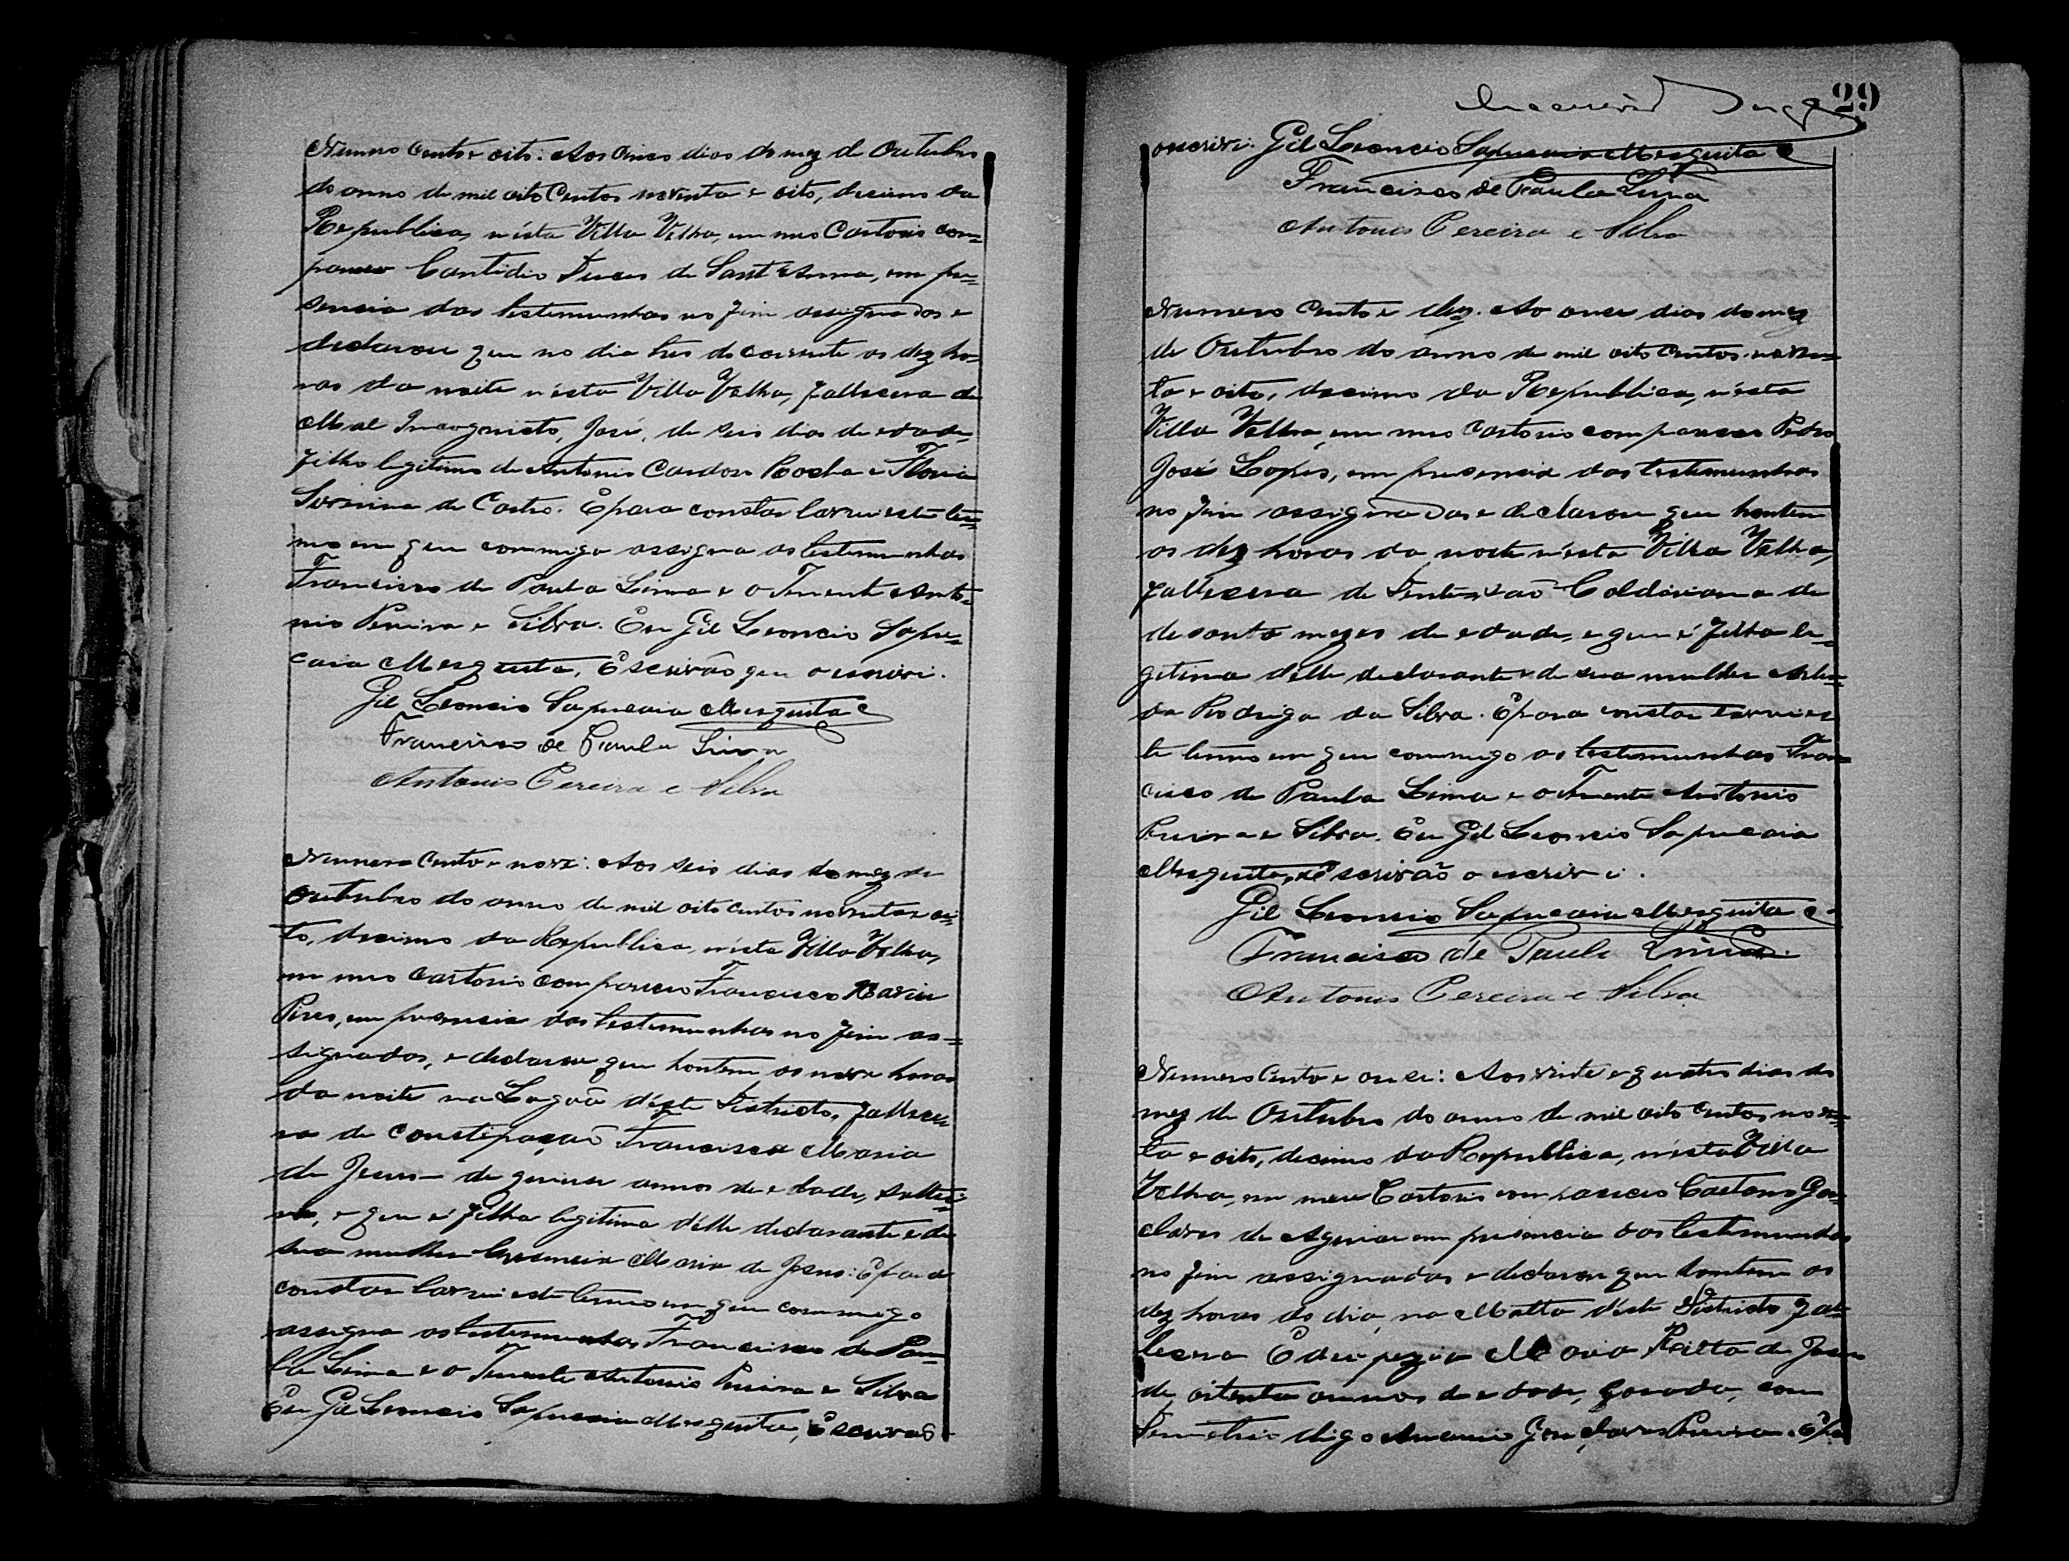 Numero cento e oito: Aos cinco dias do mez de Outubro
do anno de mil oito centos noventa e oito, decimo da
Republica, n'ésta Villa Velha, em meo Cartorio com=
pareceo Cantidio Lucas de Sant'Anna, em pre=
sencia das testemunhas no fim assignadas e
declarou que no dia tres do corrente as dez ho=
ras da noite n'ésta Villa Velha, fallecera de
Mal Incognito, José, de seis dias de edade,
filho legitimo de Antonio Cardozo Rocha e Flora
de Castro. E para constar lavrei este ter=
mo em que commigo assigna as testemunhas
Francisco de Paula Lima e o Tenente Anto=
nio Pereira e Silva. Eu Gil Leoncio Sapu=
caia Mesquita, Escrivão que o escrevi.
Gil Leoncio Sapucaia Mesquita
Francisco de Paula Lima
Antonio Pereira e Silva
Numero cento e nove: Aos seis dias do mez de
Outubro do anno de mil oito centos noventa e oi=
to, decimo da Republica, n'ésta Villa Velha,
em meo Cartorio compareceo Francisco Xavier
Pires, em presencia das testemunhas no fim as=
signadas, e declarou que hontem as nove horas
da noite na Lagoa d'este Districto, fallece=
ra de Constipação Francisca Maria
de Jesus de quinze annos de edade, soltei=
ra, e que é filha legitima d'elle declarante e de
sua mulher Maria de Jesus: E para
constar lavrei este termo em que commigo
assigna as testemunhas Francisco de Pau=
la Lima e o Tenente Antonio Pereira e Silva
Eu Gil Leoncio Sapucaia Mesquita, Escrivão
29
o escrevi. Gil Leoncio Sapucaia Mesquita
Francisco de Paula Lima
Antonio Pereira e Silva
Numero cento e dez. Ao onze dias do mez
de Outubro do anno de mil oito centos noven=
ta e oito, decimo da Republica, n'ésta
Villa Velha, em meo Cartorio compareceo Pedro
José Lopes, em presencia das testemunhas
no fim assignadas e declarou que hontem
as dez horas da noite n'ésta Villa Velha,
fallecera de de
desoito mezes de edade, e que é filha le=
gitima d'elle declarante e de sua mulher
Rodriga da Silva. E para constar lavrei es
te termo em que commigo as testemunhas Fran=
cisco de Paula Lima e o Tenente Antonio
Pereira e Silva. Eu Gil Leoncio Sapucaia
Mesquita, Escrivão o escrevi.
Gil Leoncio Sapucaia Mesquita
Francisco de Paula Lima
Antonio Pereira e Silva
Numero cento e onze: Aos vinte e quatro dias do
mez de Outubro do anno de mil oito centos noven=
ta e oito, decimo da Republica, n'ésta Villa
Velha, em meu Cartorio compareceo Caetano Gon=
çalves de Aguiar em presencia das testemunhas
no fim assignadas e declarou que hontem as
dez horas do dia, na Matta d'este Districto fal=
lecera Maria Rita de Jesus
de oitenta annos de edade, com
digo Gonçalves Pereira. E pa